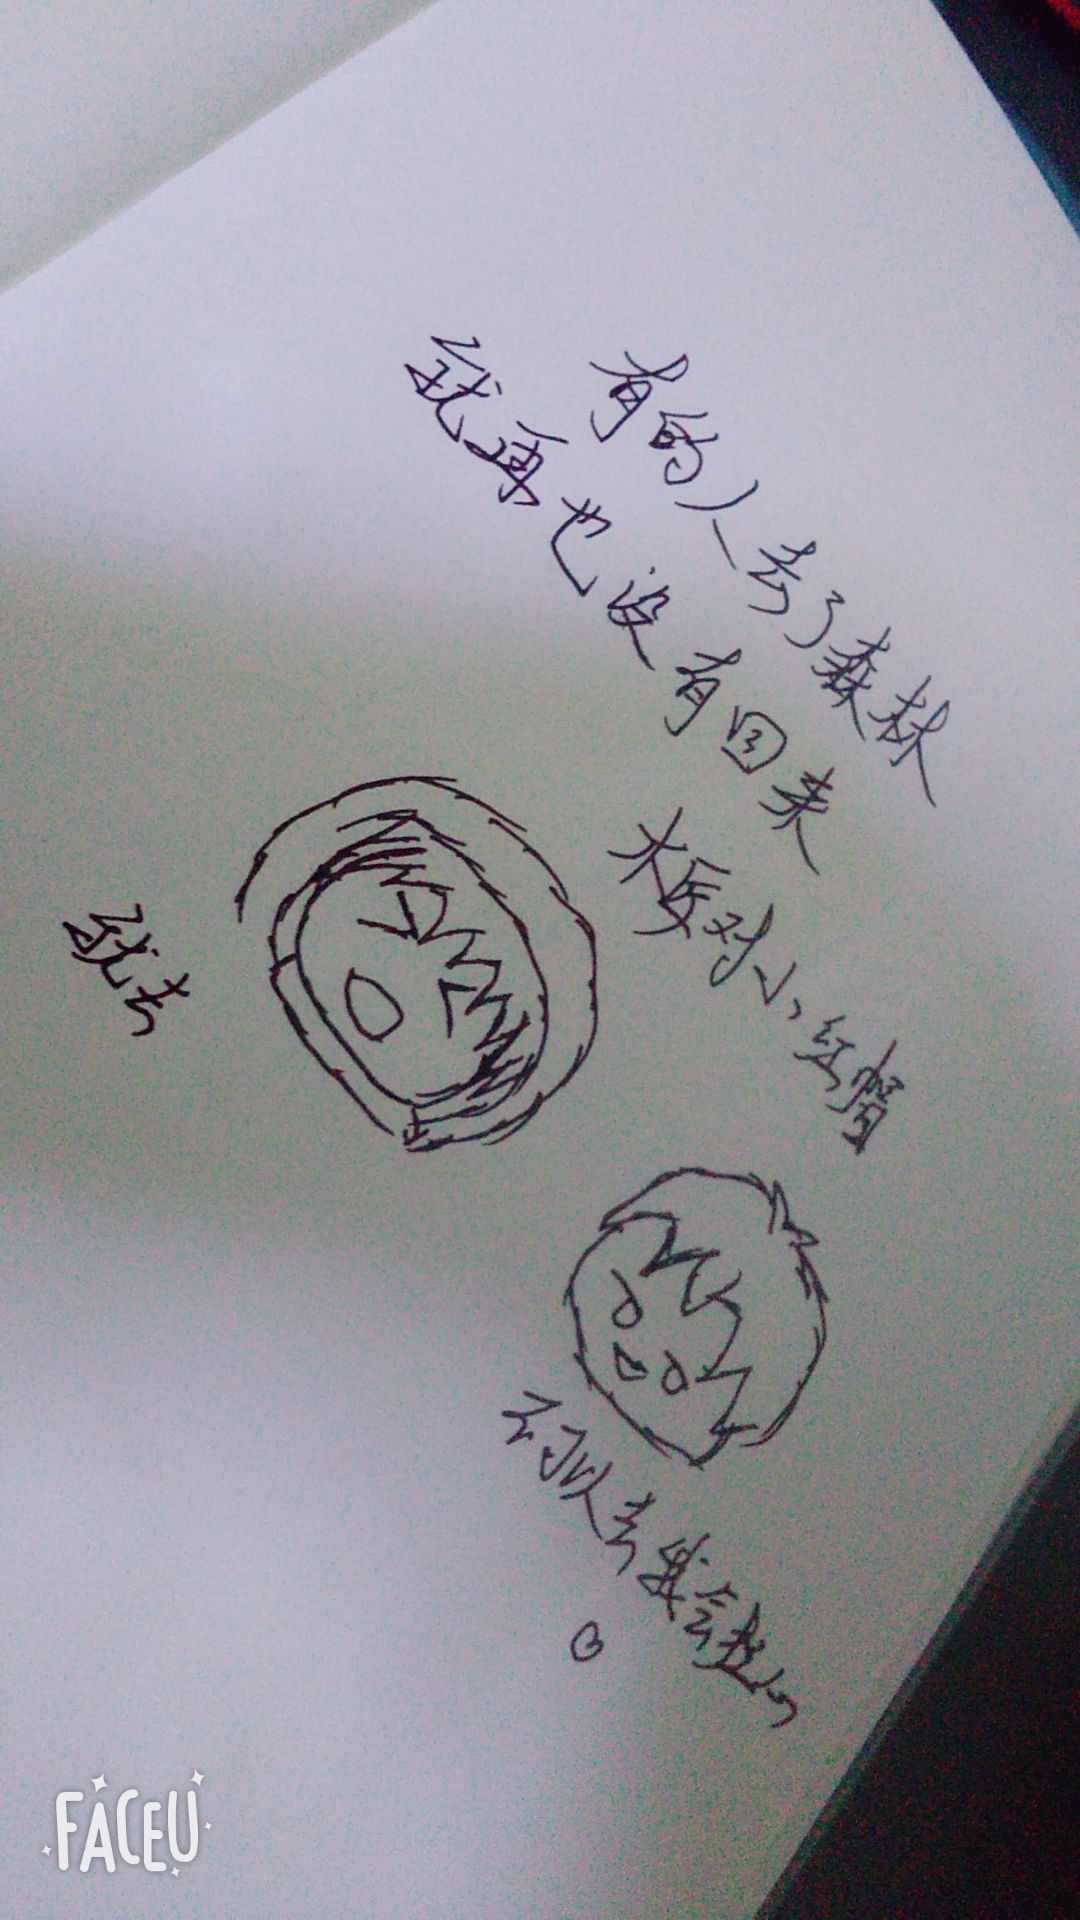 有的人去了森林
就再也没有回来
大灰对小红帽
就去
不可以去我会想
FACEU